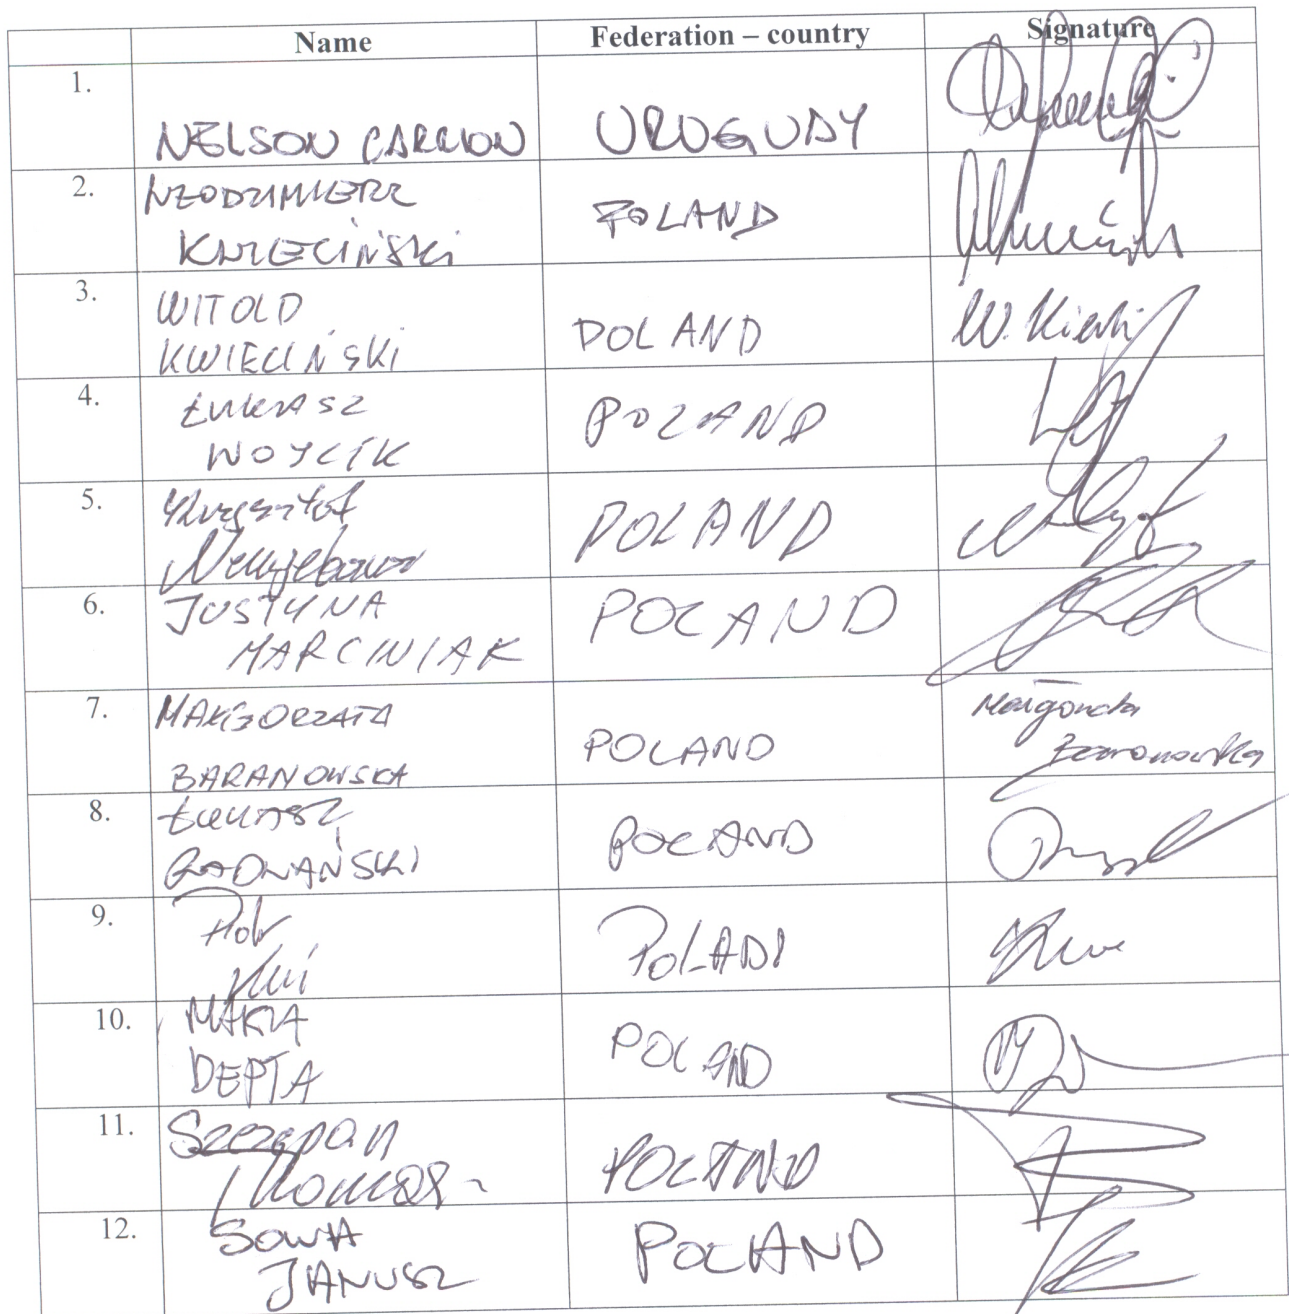 Name Federation – country Signature
1.
NELSON CARRION URUGUAY
2. WŁODZIMIERZ
KWIECIŃSKI POLAND
3. WITOLD
KWIECIŃSKI POLAND
4. ŁUKASZ
WOJCIK POLAND
5. Krzysztof
POLAND
6. JUSTYNA
MARCINIAK POLAND
7. MAŁGORZATA Małgorzata
BARANOWSKA POLAND Baranowska
8. ŁUKASZ
RADWAŃSKI POLAND
9. Piotr
POLADI
10. MARIA
DEPTA POLAND
11. Szczepan
POLAND
12. SOWA
JANUSZ POLAND